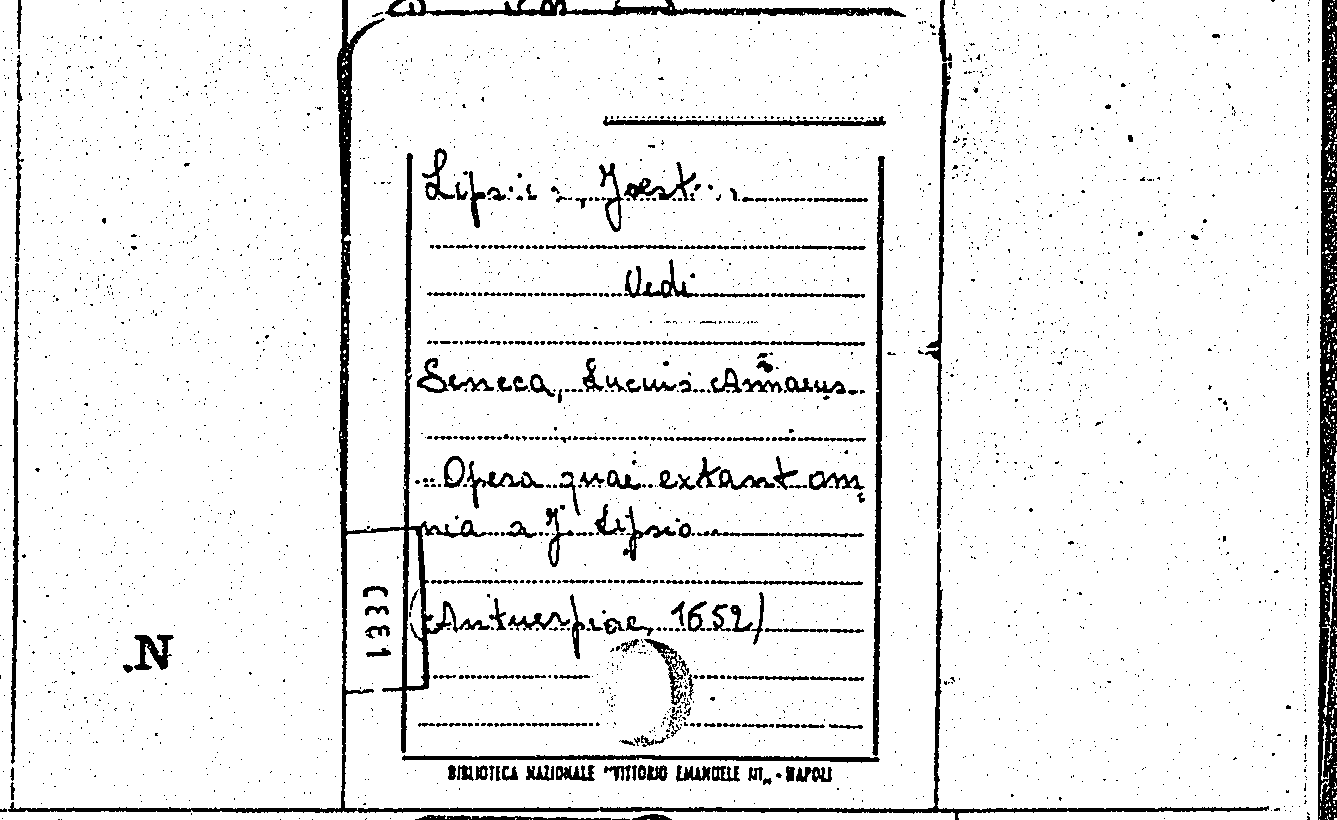 Lipsi, Joest
Vedi
Seneca, Lucius Annaeus
Opera quae extant om-
nia a J. Lipsio
(Antuerpiae, 1652)
1331
.N
BIBLIOTECA NAZIONALE "VITTORIO EMANUELE III„ - NAPOLI